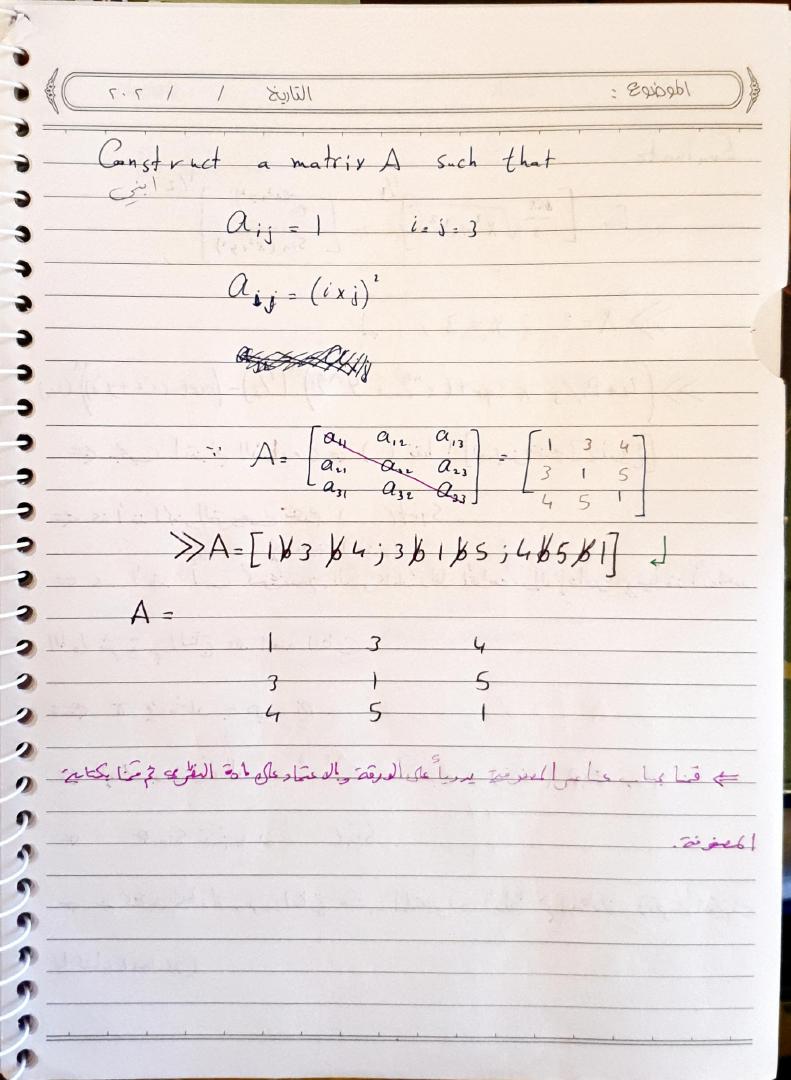 الموضوع : التاريخ / / ٢٠٢
Construct a matrix A such that
ابني
aij = 1 i = j = 3
aij = (i×j)²
∵ A = [a11 a12 a13 = [1 3 4
a21 a22 a23 3 1 5
a31 a32 a33] 4 5 1]
>> A = [1 ␢ 3 ␢ 4 ; 3 ␢ 1 ␢ 5 ; 4 ␢ 5 ␢ 1] ↲
A =
1 3 4
3 1 5
4 5 1
⇐ قمنا بحساب عناصر المصفوفة يدوياً على الورقة وبالاعتماد على مادة النظري ثم قمنا بكتابة
المصفوفة.